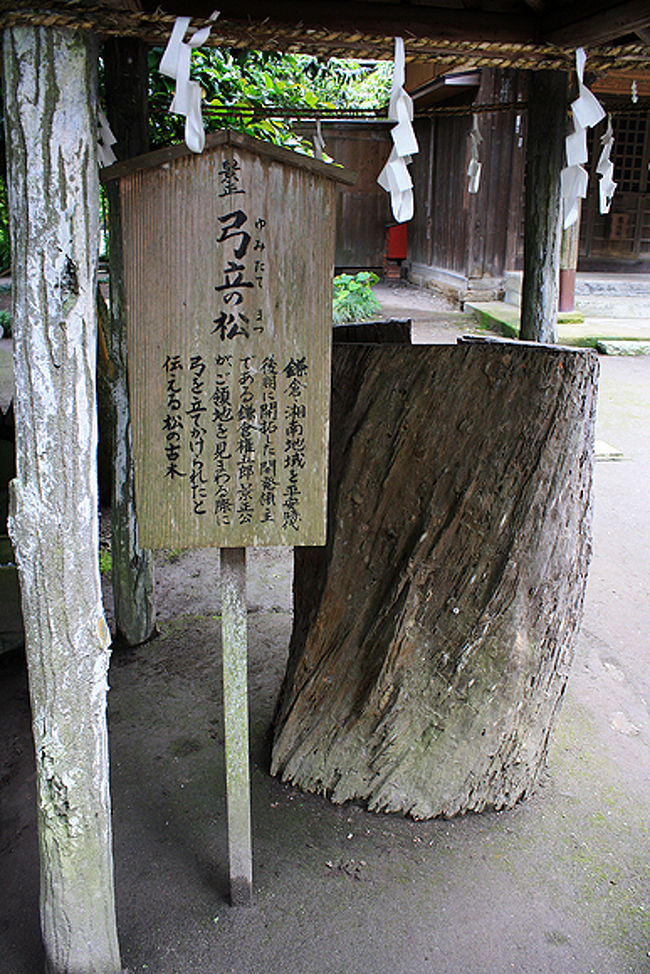 景正
弓立の松
ゆみたて まつ
鎌倉・湘南地域を平安残
後期に開拓した開発領主
である鎌倉権五郎景正公
が、ご領地を見まわる際に
弓を立てかけられたと
伝える松の古木